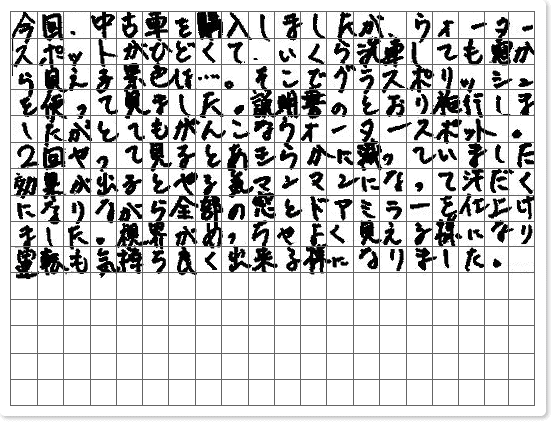 今回、中古車を購入しましたが、ウォーター
スポットがひどくて、いくら洗車しても窓か
ら見える景色は…。そこでグラスポリッシュ
を使って見ました。説明書のとおり施行しま
したがとてもがんこなウォータースポット。
2回やって見るとあきらかに減っていました
効果が出るとやる気マンマンになって汗だく
になりながら全部の窓とドアミラーを仕上げ
ました。視界がめっちゃよく見える様になり
運転も気持ち良く出来る様になりました。